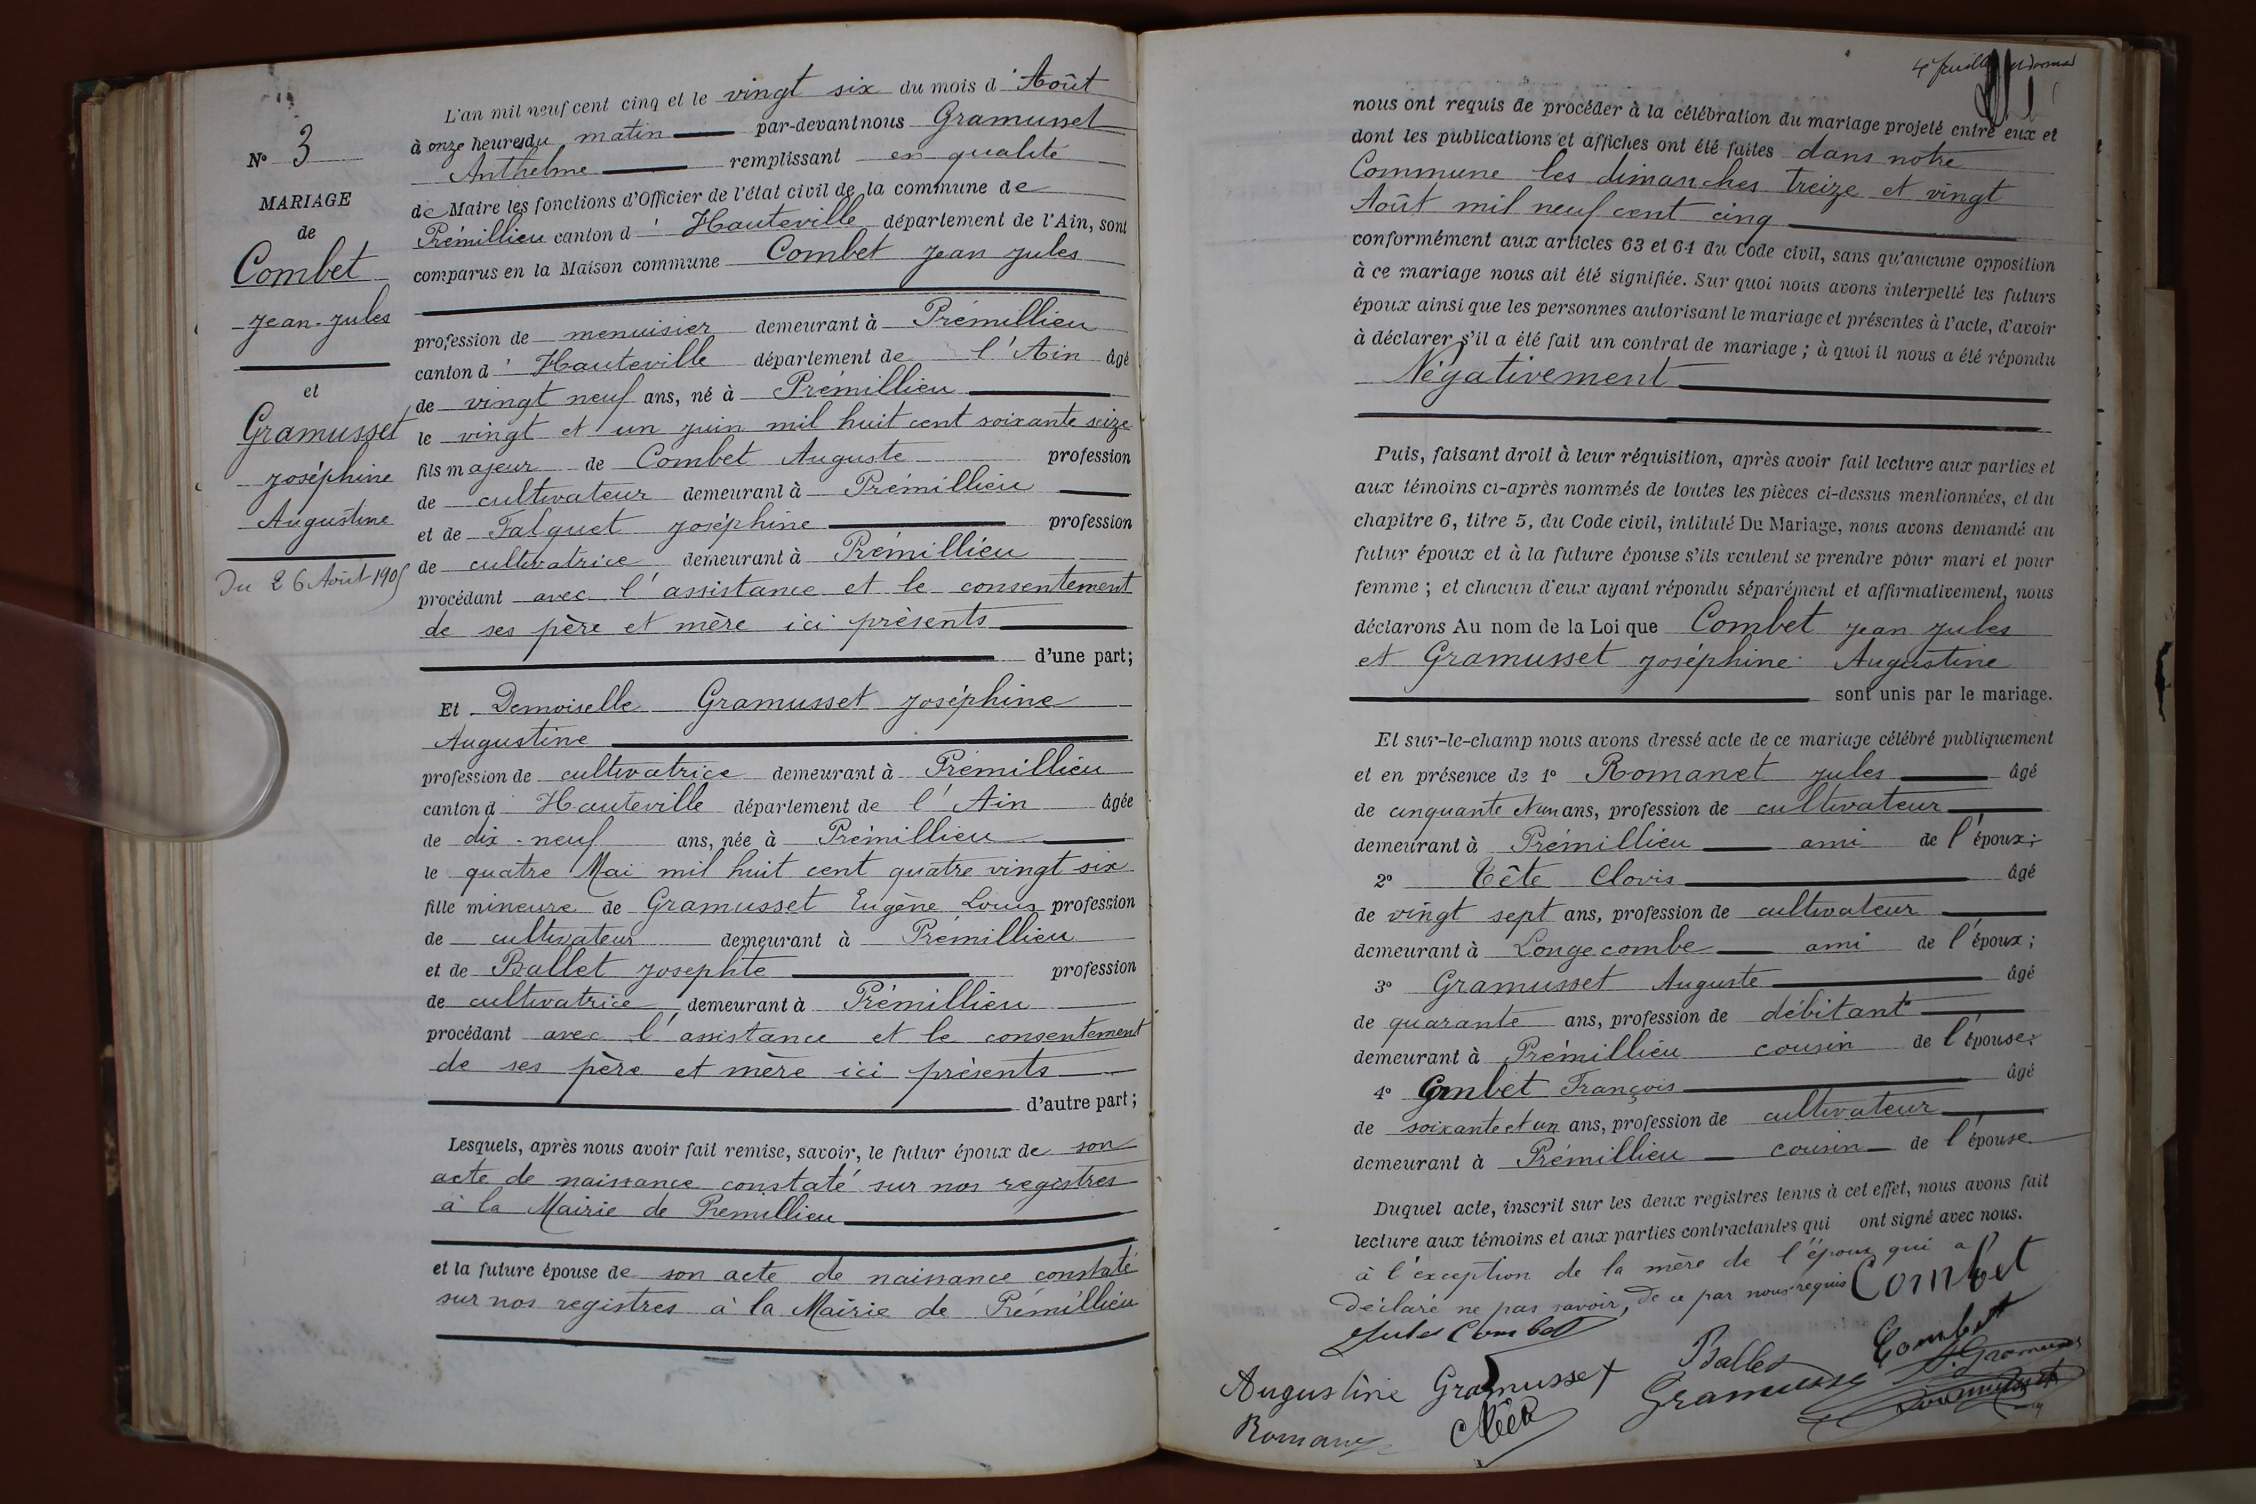 N° 3
MARIAGE
de
Combet
Jean-Jules
et
Gramusset
Joséphine
Augustine
Du 26 Août 1905
L'an mil neuf cent cinq et le vingt six du mois d'Août
à onze heures du matin par-devant nous Gramusset
Anthelme remplissant en qualité
de Maire les fonctions d'Officier de l'état civil de la commune de
Prémillieu canton d'Hauteville département de l'Ain, sont
comparus en la Maison commune Combet Jean Jules
profession de menuisier demeurant à Prémillieu
canton d'Hauteville département de l'Ain âgé
de vingt neuf ans, né à Prémillieu
le vingt et un juin mil huit cent soixante seize
fils majeur de Combet Auguste profession
de cultivateur demeurant à Prémillieu
et de Falquet Joséphine profession
de cultivatrice demeurant à Prémillieu
procédant avec l'assistance et le consentement
de ses père et mère ici présents
d'une part;
Et Demoiselle Gramusset Joséphine
Augustine
profession de cultivatrice demeurant à Prémillieu
canton d'Hauteville département de l'Ain âgée
de dix-neuf ans, née à Prémillieu
le quatre Mai mil huit cent quatre vingt six
fille mineure de Gramusset Eugène Louis profession
de cultivateur demeurant à Prémillieu
et de Ballet Josephte profession
de cultivatrice demeurant à Prémillieu
procédant avec l'assistance et le consentement
de ses père et mère ici présents
d'autre part;
Lesquels, après nous avoir fait remise, savoir, le futur époux de son
acte de naissance constaté sur nos registres
à la Mairie de Prémillieu
et la future épouse de son acte de naissance constaté
sur nos registres à la Mairie de Prémillieu
nous ont requis de procéder à la célébration du mariage projeté entre eux et
dont les publications et affiches ont été faites dans notre
Commune les dimanches treize et vingt
Août mil neuf cent cinq
conformément aux articles 63 et 64 du Code civil, sans qu'aucune opposition
à ce mariage nous ait été signifiée. Sur quoi nous avons interpellé les futurs
époux ainsi que les personnes autorisant le mariage et présentes à l'acte, d'avoir
à déclarer s'il a été fait un contrat de mariage; à quoi il nous a été répondu
Négativement
Puis, faisant droit à leur réquisition, après avoir fait lecture aux parties et
aux témoins ci-après nommés de toutes les pièces ci-dessus mentionnées, et du
chapitre 6, titre 5, du Code civil, intitulé Du Mariage, nous avons demandé au
futur époux et à la future épouse s'ils veulent se prendre pour mari et pour
femme; et chacun d'eux ayant répondu séparément et affirmativement, nous
déclarons Au nom de la Loi que Combet Jean Jules
et Gramusset Joséphine Augustine
sont unis par le mariage.
Et sur-le-champ nous avons dressé acte de ce mariage célébré publiquement
et en présence de 1° Romanet Jules âgé
de cinquante ans, profession de cultivateur
demeurant à Prémillieu ami de l'époux;
2° Tête Clovis âgé
de vingt sept ans, profession de cultivateur
demeurant à Longecombe ami de l'époux;
3° Gramusset Auguste âgé
de quarante ans, profession de débitant
demeurant à Prémillieu cousin de l'épouse;
4° Combet François âgé
de soixante et un ans, profession de cultivateur
demeurant à Prémillieu cousin de l'épouse
Duquel acte, inscrit sur les deux registres tenus à cet effet, nous avons fait
lecture aux témoins et aux parties contractantes qui ont signé avec nous.
à l'exception de la mère de l'époux qui a
déclaré ne pas savoir, de ce par nous requis Combet
Jules Combet
Ballet Combet
Augustine Gramusset Gramusset
Romanet